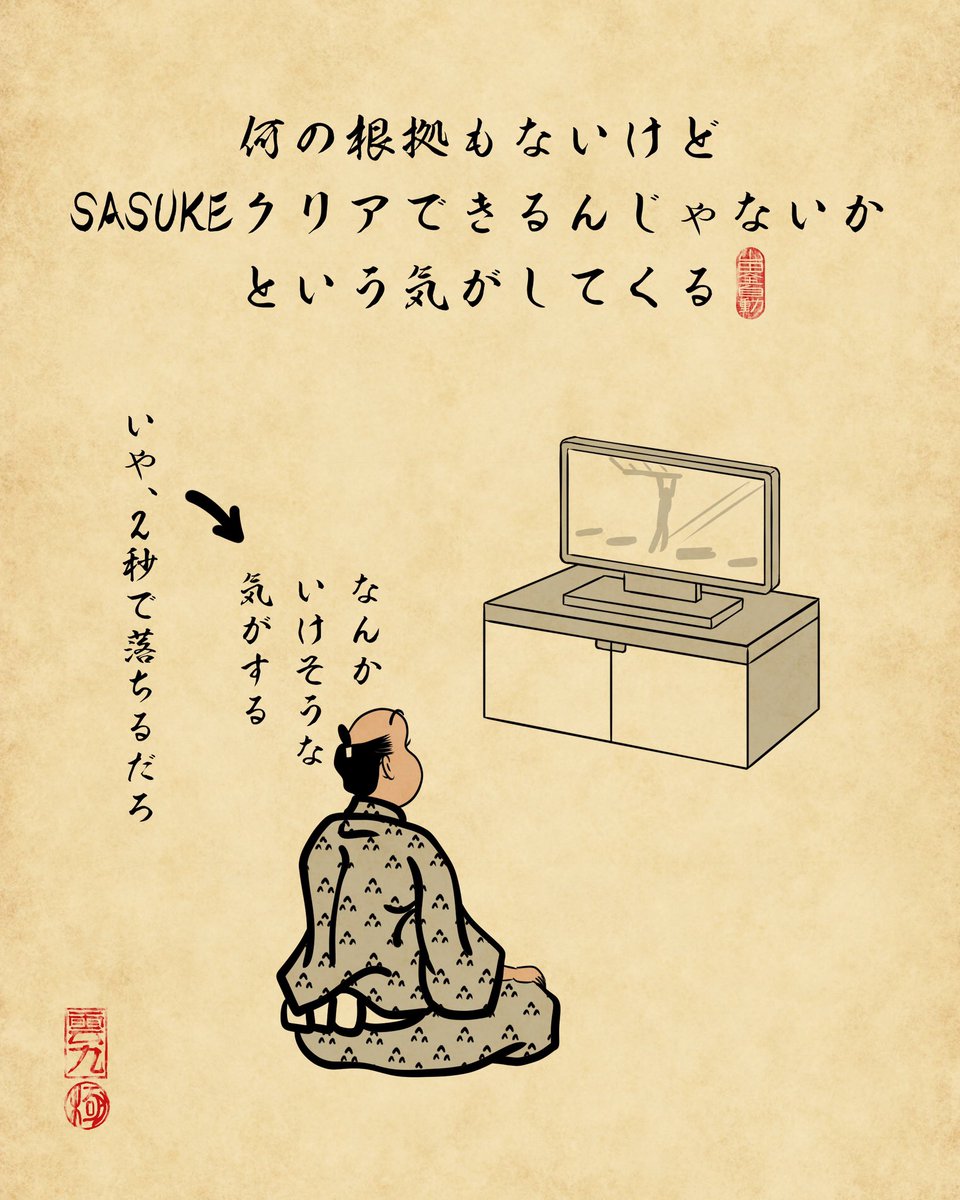 何の根拠もないけど
SASUKEクリアできるんじゃないか
という気がしてくる
なんか
いけそうな
気がする
いや、2秒で落ちるだろ